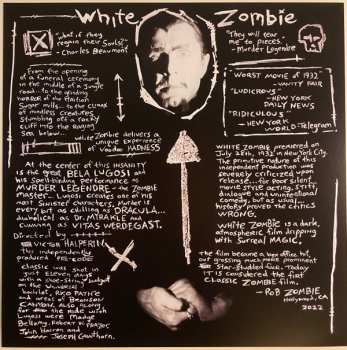 White Zombie
"what if they
regain their Souls?"
- Charles Beaumont
"They will tear
me to pieces."
- Murder Legendre
From the opening
of a funeral ceremony
in the middle of a jungle
road... to the grinding
horror of the Haitian
Sugar mills... to the climax
of mindless creatures
stumbling off a rocky
cliff into the raging
Sea below...
White Zombie delivers a
unique experience
of Voodoo MADNESS
"WORST MOVIE OF 1932"
-VANITY FAIR
"LUDICROUS"
- NEW YORK
DAILY NEWS
"RIDICULOUS"
- NEW YORK
WORLD Telegram
At the center of this INSANITY
is the great BELA LUGOSI and
his Spell-binding performance as
MURDER LEGENDRE - the ZOMBIE
master... Lugosi creates one of his
most Sinister characters, Murder is
every bit as chilling as DRACULA...
diabolical as DR. MIRAKLE and
cunning as VITAS WERDEGAST.
Directed by
VICTOR HALPERIN
this independently
produced PRE-CODE
classic was shot in
just eleven days
with a shoe-string budget
on the Universal
backlot, RKO PATHE
and areas of BRONSON
CANYON. Also, along
for the ride with
Lugosi were Madge
Bellamy, Robert W. FRAZER,
John Harron and
Joseph Cawthorn.
WHITE ZOMBIE premiered on
July 28th, 1932 in New York City.
The primitive nature of this
independent production was
severely criticized upon
release... for poor silent
movie style acting, Stiff
dialogue and unintentional
comedy, but as usual
history proved the critics
WRONG.
WHITE ZOMBIE is a dark,
atmospheric film dripping
with Surreal MAGIC.
The film became a box office hit,
out grossing much more prominent
Star-Studded fare. Today
IT IS considered the first
CLASSIC ZOMBIE film.
- ROB ZOMBIE
Hollywood, CA
2022